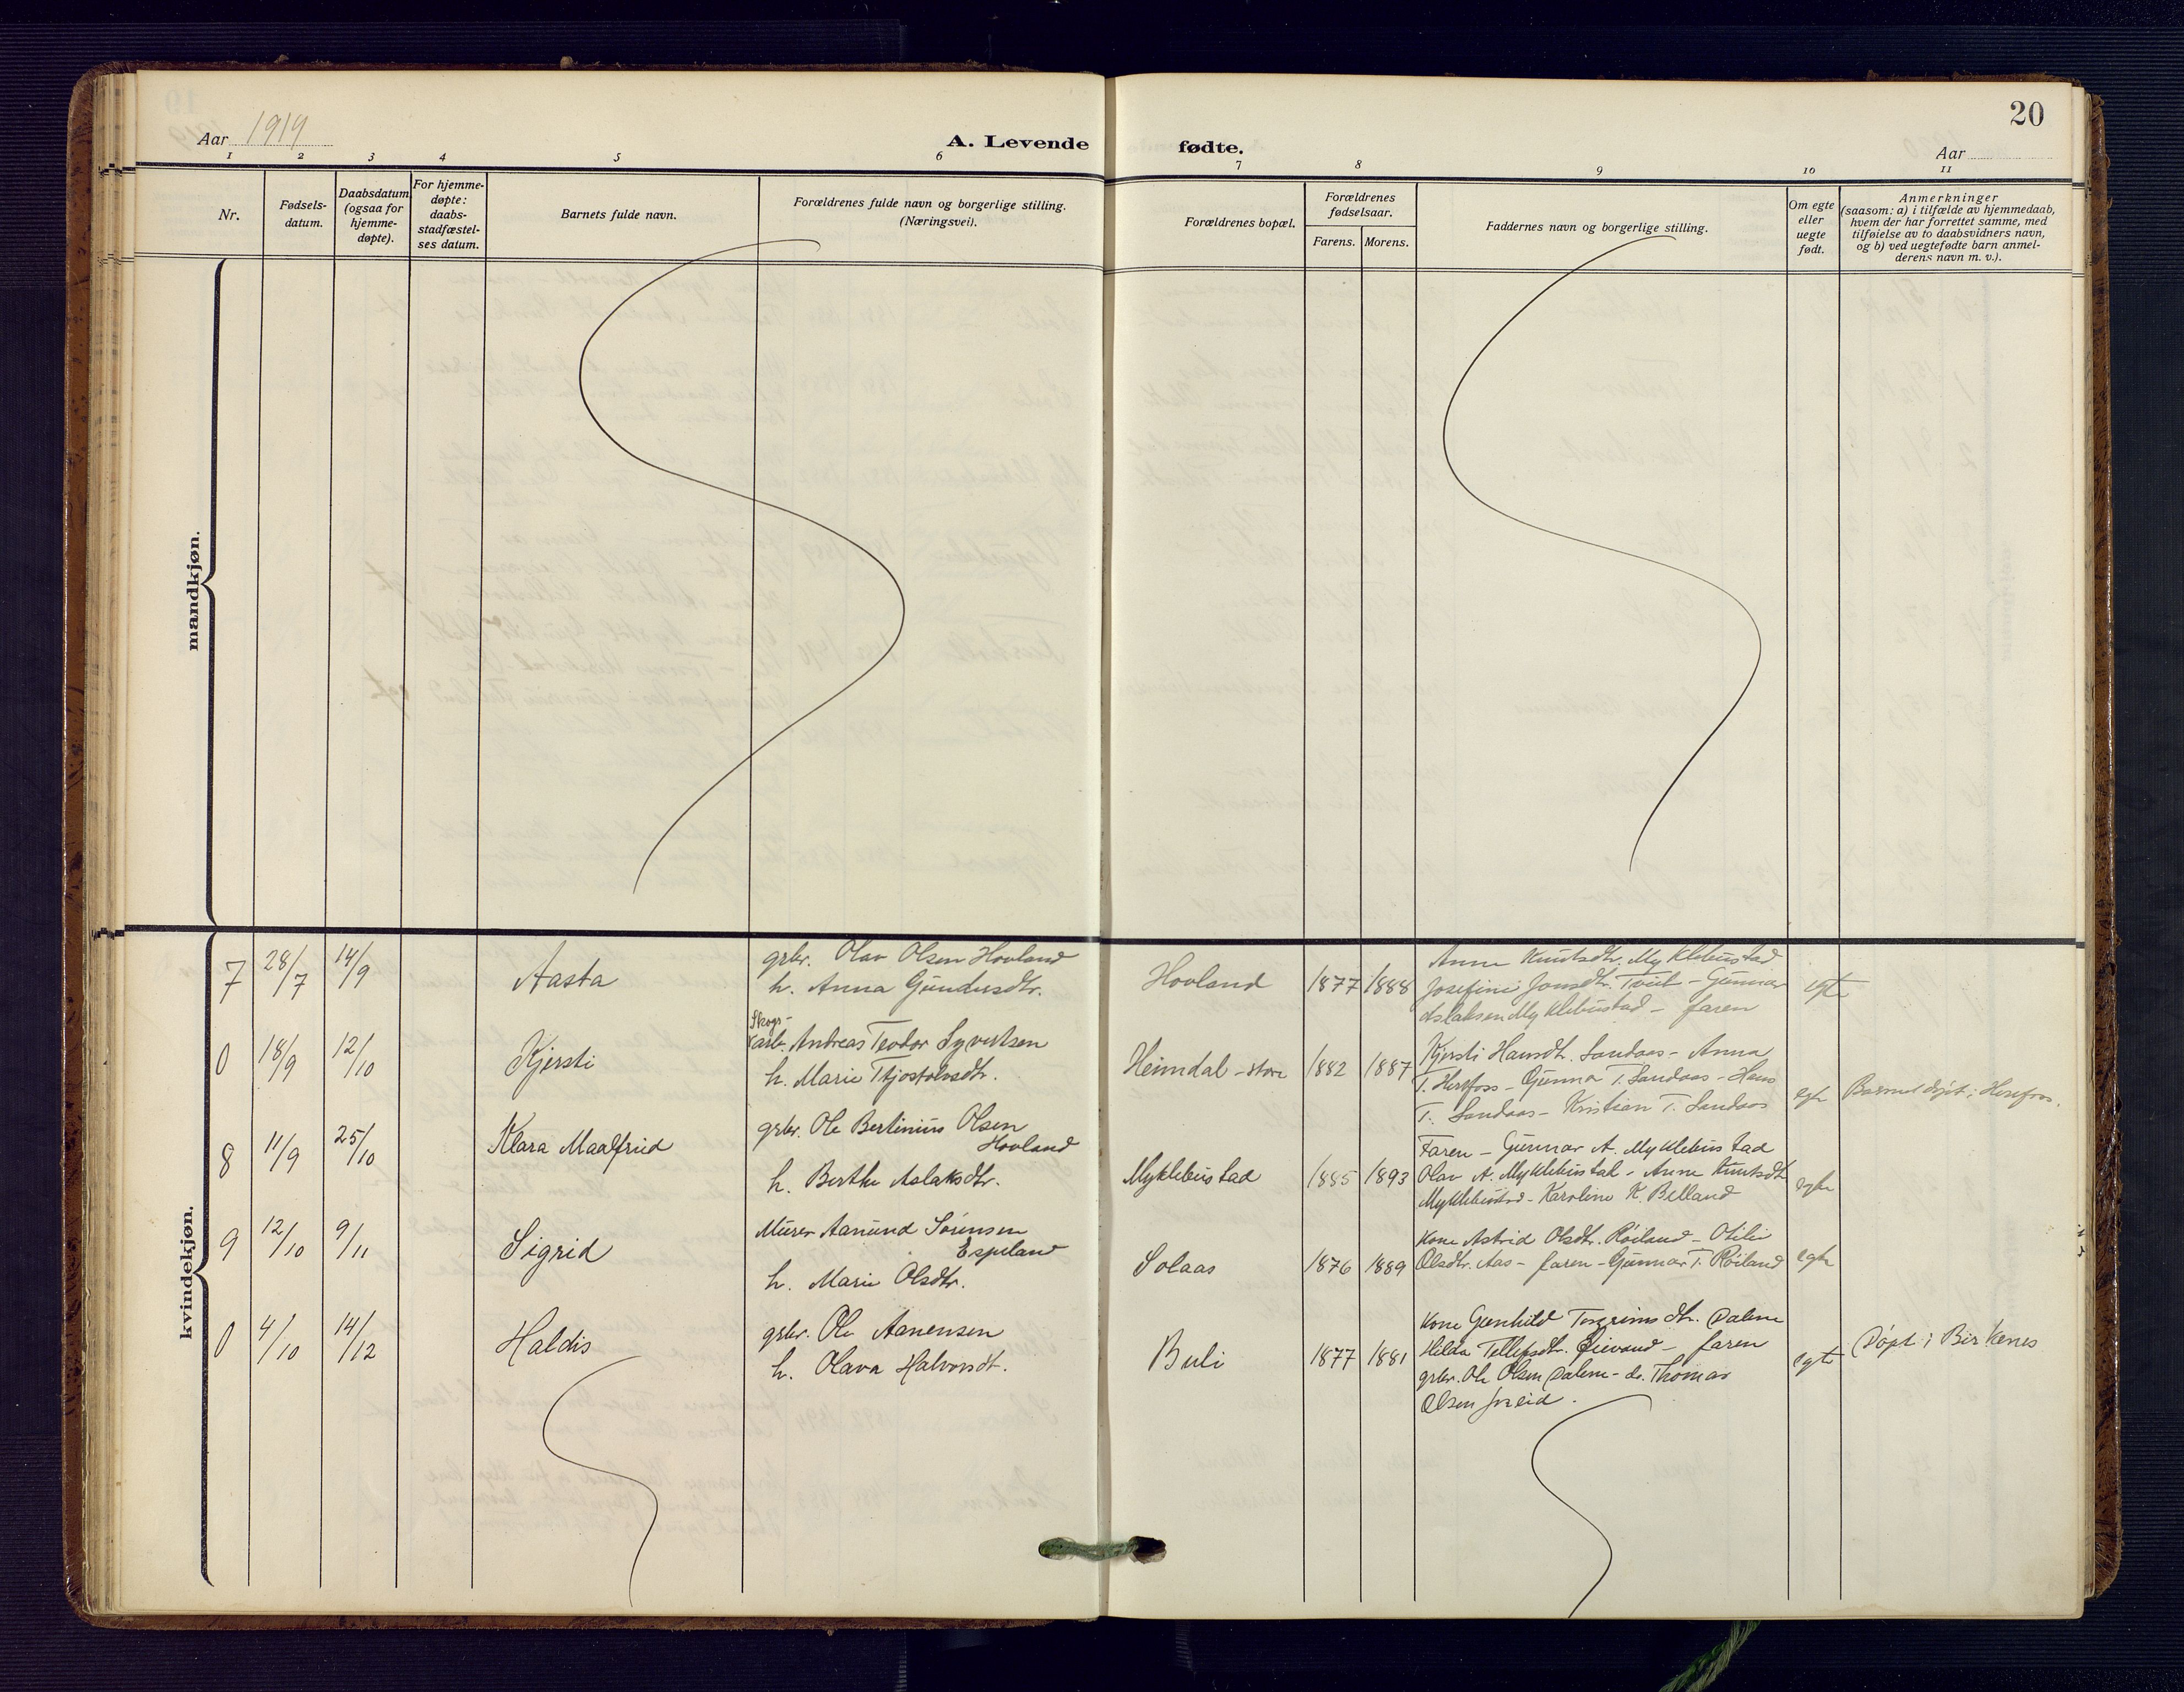 20
Aar 1919
A. Levende fødte.
Aar
1 2 3 4 5 6 7 8 9 10 11
Nr.
Fødsels-
datum.
Daabsdatum
(ogsaa for
hjemme-
døpte).
For hjemme-
døpte:
daabs-
stadfæstel-
ses datum.
Barnets fulde navn.
Forældrenes fulde navn og borgerlige stilling.
(Næringsvei).
Forældrenes bopæl.
Forældrenes
fødselsaar.
Farens. Morens.
Faddernes navn og borgerlige stilling.
Om egte
eller
uegte
født.
Anmerkninger
(saasom: a) i tilfælde av hjemmedaab,
hvem der har forrettet samme, med
tilføielse av to daabsvidners navn,
og b) ved uegtefødte barn anmel-
derens navn m. v.).
mandkjøn.
kvindekjøn.
7 28/7 14/9
Aasta
grbr. Olav Olsen Hovland
h. Anna Gundersdtr.
Hovland
1877 1888
Anne Knutsdtr. Myklebustad
Josefine Jonsdtr. Tveit - Gunnar
Aslaksen Myklebustad - faren
egte
0 18/9 12/10
Kjersti
Skogs-
arb. Andreas Teodor Syvertsen
h. Marie Tjostolvsdtr.
Heimdal - store
1882 1887
Kjersti Hansdtr. Sandaas - Anna
T. Herefoss - Gunna T. Sandaas - Hans
T. Sandaas - Kristian T. Sandaas
egte
Barnet døpt i Herefoss.
8 11/9 25/10
Klara Maalfrid
grbr. Ole Bertinius Olsen
Hovland
h. Berthe Aslaksdtr.
Myklebustad
1885 1893
Faren - Gunnar A. Myklebustad
Olav A. Myklebustad - Anne Knutsdtr
Myklebustad - Karoline K. Belland
egte
9 12/10 9/11
Sigrid
Murer Aanund Sørensen
Espeland
h. Marie Olsdtr.
Solaas
1876 1889
Kone Astrid Olsdtr. Røiland - Otilie
Olsdtr. Aas - faren - Gunnar T. Røiland
egte
0 4/10 14/12
Haldis
grbr. Ole Aanensen
h. Olava Halvorsdt.
Buli
1877 1881
Kone Gunhild Torgrimsdtr. Dalene
Hilda Tellefsdtr. - faren
grbr. Ole Olsen Dalene - do. Thomas
Olsen
egte
Døpt i Birkenes